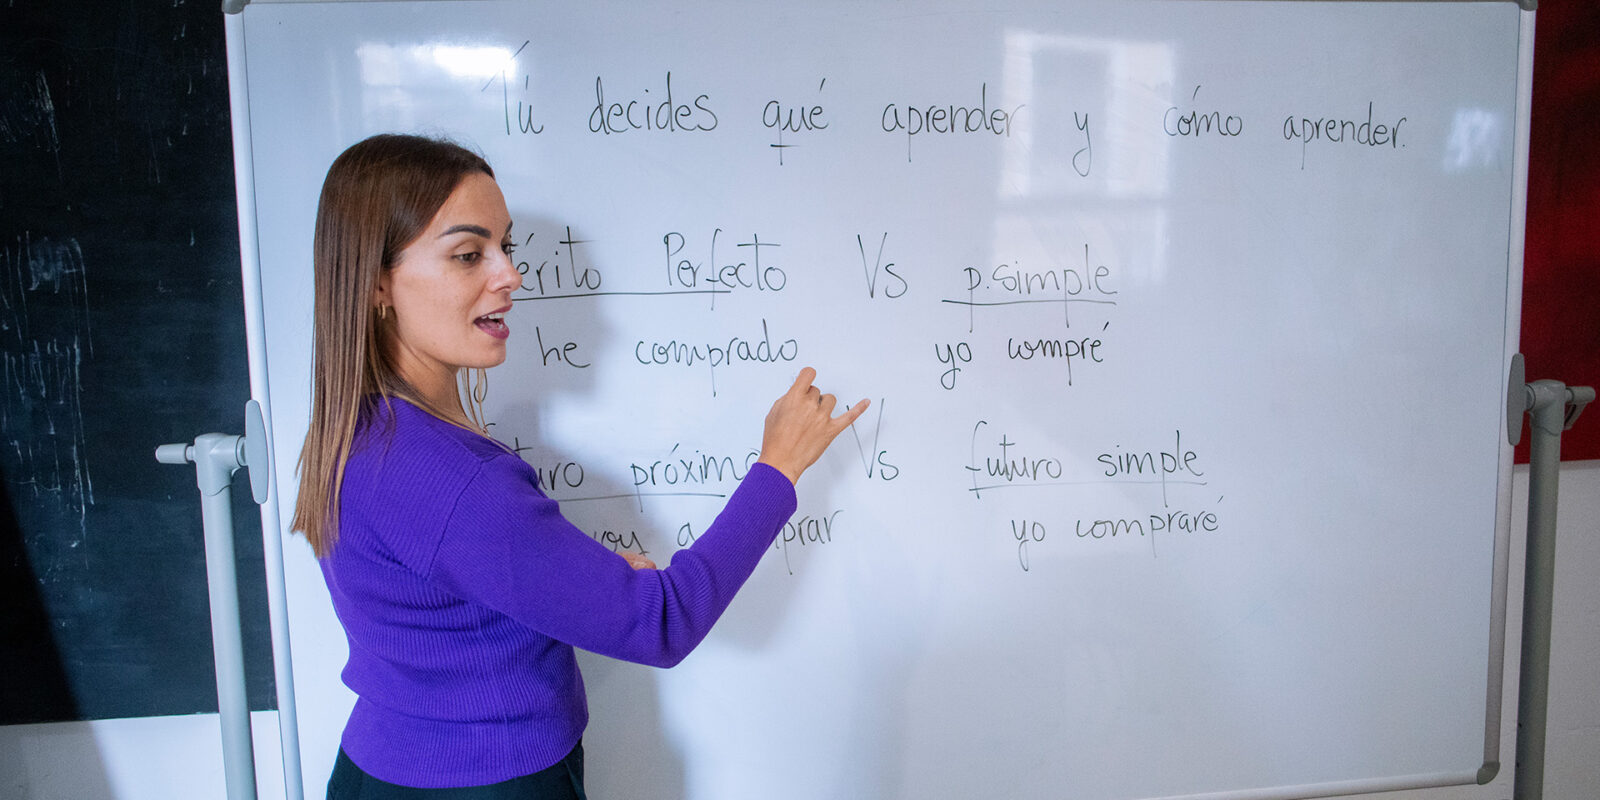 Tú decides qué aprender y cómo aprender.
Perfecto Vs p.simple
he comprado yo compré
próximo Vs futuro simple
voy a yo compraré